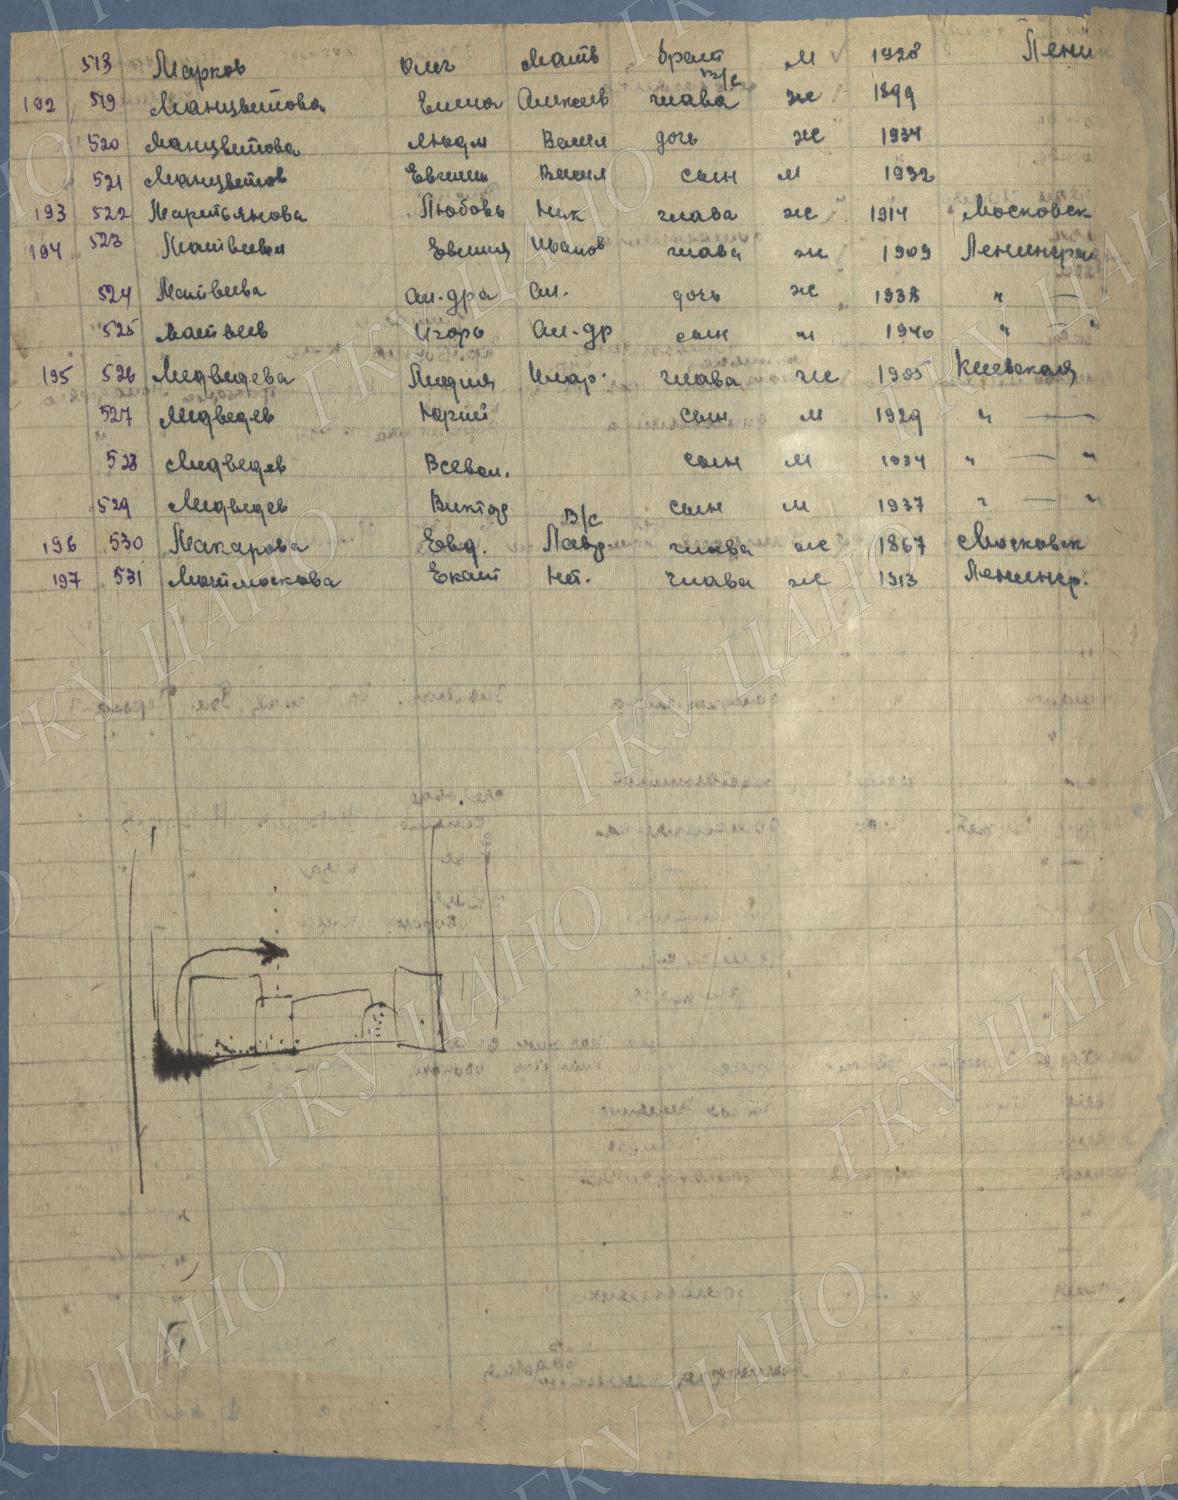 518 Марков Олег Матв брат м 1928 Лени
192 519 Манцветова Елена Алексеев глава в/с ж 1899
520 Манцветова Людм Васил дочь ж 1934
521 Манцветов Евгений Васил сын м 1932
193 522 Мартьянова Любовь Ник глава ж 1914 Московск
194 523 Матвеева Евгения Иванов глава ж 1909 Ленинград
524 Матвеева Ал-дра Ал. дочь ж 1938 " — "
525 Матвеев Игорь Ал-др сын м 1940 " — "
195 526 Медведева Лидия Илар. глава ж 1905 Киевская
527 Медведев Юрий сын м 1929 " —
528 Медведев Всевол. сын м 1934 " — "
529 Медведев Виктор сын м 1937 " — "
196 530 Макарова Евд. Лавр в/с глава ж 1867 Московск
197 531 Екат глава ж 1913 Ленингр.
ГКУ ЦАНО